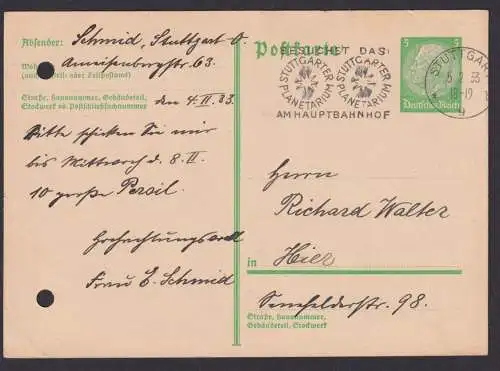 Absender: Schmid, Stuttgart O.
Ameisenbergstr. 63.
(auch Zustell- oder Leitpostamt)
Straße, Hausnummer, Gebäudeteil,
Stockwerk od. Postschließfachnummer
den 4.II.33
Bitte schicken Sie mir
bis Mittwoch d. 8.II
10 große Persil.
Hochachtungsvoll
Frau E. Schmid
Postkarte
BESUCHET DAS
STUTTGARTER PLANETARIUM
STUTTGARTER PLANETARIUM
AM HAUPTBAHNHOF
STUTTGART
33
18-19
9
5 5
Deutsches Reich
Herrn
Richard Walter
in Hier
Senefelderstr. 98.
Straße, Hausnummer,
Gebäudeteil, Stockwerk